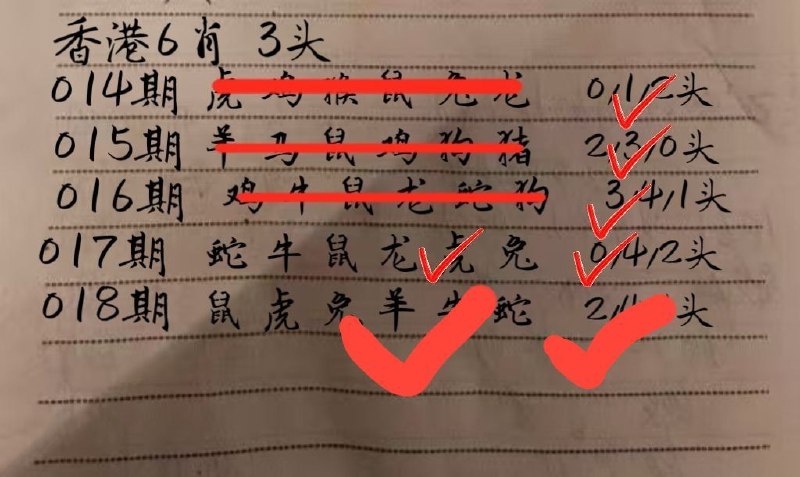 香港6肖 3头
014期 虎 鸡 猴 鼠 兔 龙 0/1/2头
015期 羊 马 鼠 鸡 狗 猪 2/3/0头
016期 鸡 牛 鼠 龙 蛇 狗 3/4/1头
017期 蛇 牛 鼠 龙 虎 兔 0/4/2头
018期 鼠 虎 兔 羊 牛 蛇 2/4/头